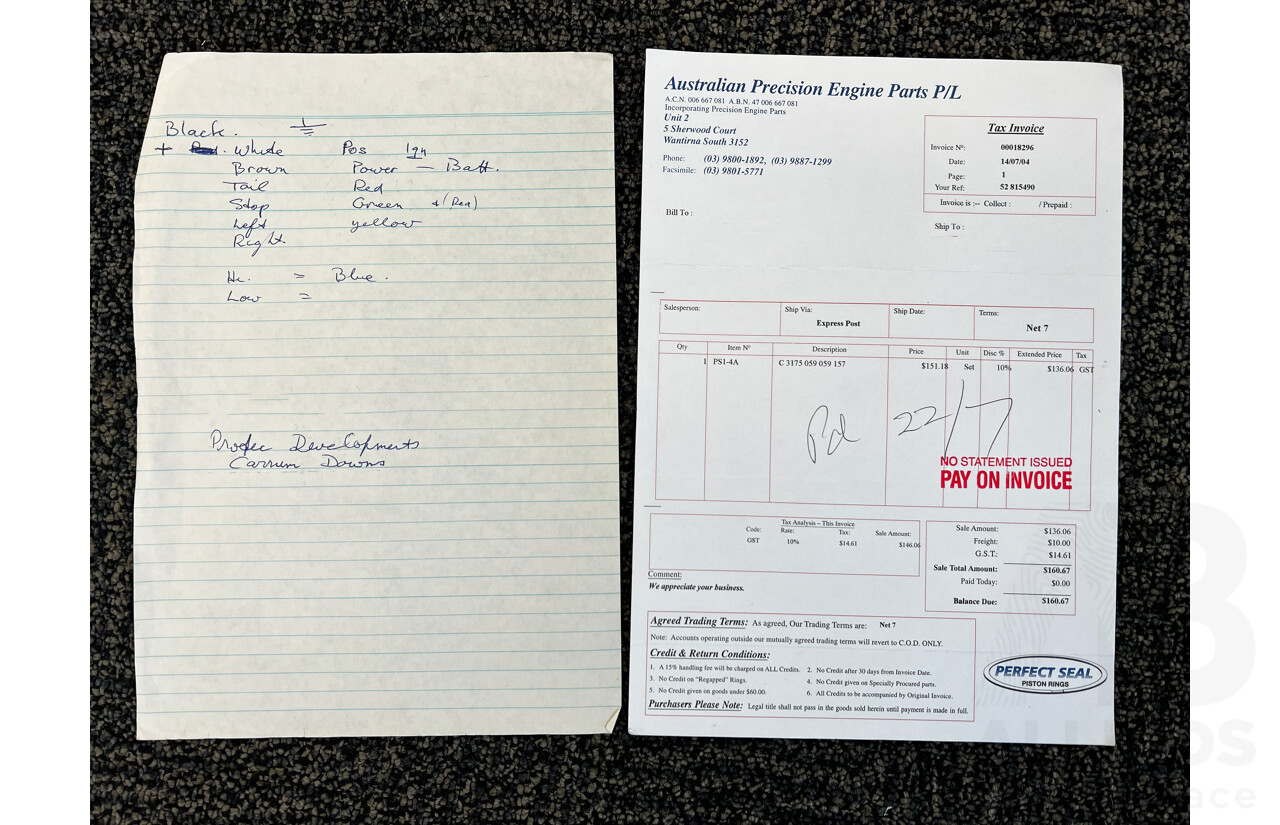 Black.
+ White Pos Ign
Brown Power - Batt.
Tail Red
Stop Green
Left yellow
Right
Hi. = Blue.
Low =
Developments
Carrum Downs
Australian Precision Engine Parts P/L
A.C.N. 006 667 081 A.B.N. 47 006 667 081
Incorporating Precision Engine Parts
Unit 2
5 Sherwood Court
Wantirna South 3152
Phone: (03) 9800-1892, (03) 9887-1299
Facsimile: (03) 9801-5771
Tax Invoice
Invoice Nº: 00018296
Date: 14/07/04
Page: 1
Your Ref: 52 815490
Invoice is :-- Collect : / Prepaid :
Bill To :
Ship To :
Salesperson: Ship Via: Ship Date: Terms:
Express Post Net 7
Qty Item Nº Description Price Unit Disc % Extended Price Tax
1 PS1-4A C 3175 059 059 157 $151.18 Set 10% $136.06 GST
Pd 22/7
NO STATEMENT ISSUED
PAY ON INVOICE
Tax Analysis – This Invoice
Code: Rate: Tax: Sale Amount:
GST 10% $14.61 $146.06
Sale Amount: $136.06
Freight: $10.00
G.S.T.: $14.61
Sale Total Amount: $160.67
Paid Today: $0.00
Balance Due: $160.67
Comment:
We appreciate your business.
Agreed Trading Terms: As agreed, Our Trading Terms are: Net 7
Note: Accounts operating outside our mutually agreed trading terms will revert to C.O.D. ONLY.
Credit & Return Conditions:
1. A 15% handling fee will be charged on ALL Credits. 2. No Credit after 30 days from Invoice Date.
3. No Credit on "Regapped" Rings. 4. No Credit given on Specially Procured parts.
5. No Credit given on goods under $60.00. 6. All Credits to be accompanied by Original Invoice.
Purchasers Please Note: Legal title shall not pass in the goods sold herein until payment is made in full.
PERFECT SEAL
PISTON RINGS